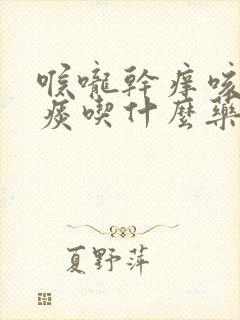 喉嚨幹癢咳
痰喫什麼藥
夏野萍